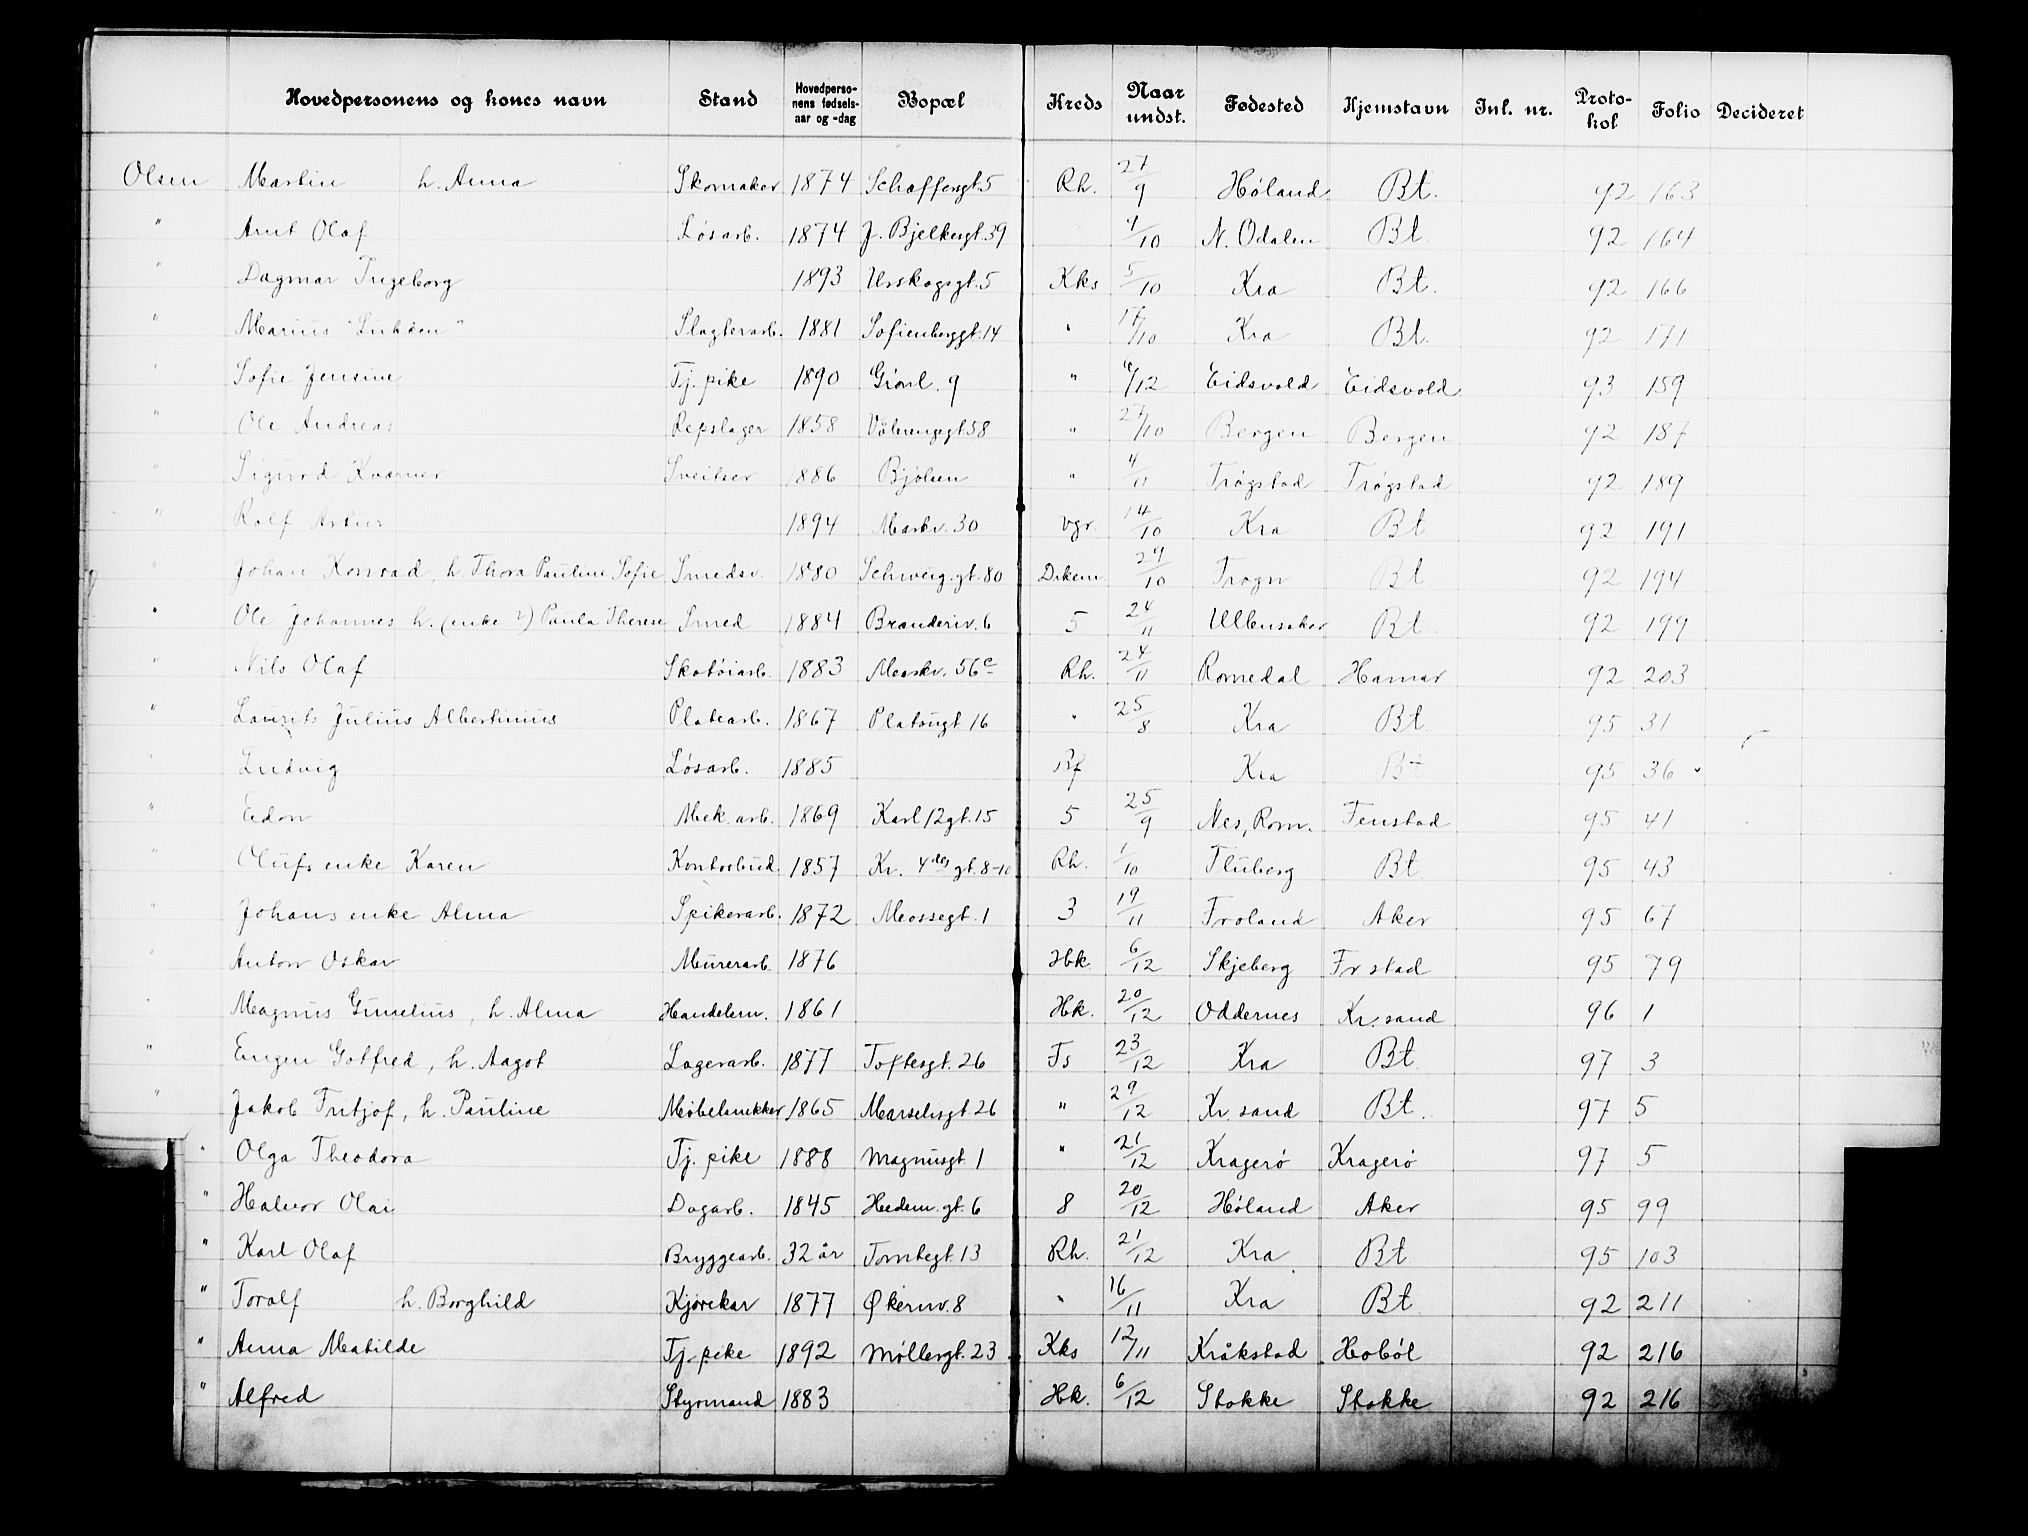 Hovedpersonens og kones navn Stand Hovedperso-nens fødsels-aar og -dag Bopæl Kreds Naar undst. Fødested Hjemstavn Inl. nr. Proto-kol Folio Decideret
Olsen Martin h. Anna Skomaker 1874 Schaffersgt. 5 Rh. 27/9 Høland Bt. 92 163
" Arnt Olaf Løsarb. 1874 J. Bjelkesgt. 39 4/10 N. Odalen Bt. 92 164
" Dagmar Ingeborg 1893 Urskogsgt. 5 Kks 5/10 Kra Bt. 92 166
" Marius Slagterarb. 1881 Sofienberggt. 14 " 17/10 Kra Bt. 92 171
" Sofie Jensine Tj. pike 1890 Grønl. 9 " 6/12 Eidsvold Eidsvold 93 159
" Ole Andreas Repslager 1858 Vålerenggt. 58 " 27/10 Bergen Bergen 92 187
" Sigurd Kværner Sveitser 1886 Bjølsen " 4/11 Trøgstad Trøgstad 92 189
" Rolf Artur 1894 Markv. 30 Vgr. 14/10 Kra Bt 92 191
" Johan Konrad, h. Thora Pauline Sofie Smedsv. 1880 Schweig.gt. 80 Dikem. 29/10 Frogn Bt. 92 194
" Ole Johannes h. (enke ?) Paula Therese Smed 1884 Branderiv. 6 5 24/11 Ullensaker Bt. 92 199
" Nils Olaf Skotøiarb. 1883 Markv. 56c Rh. 24/11 Romedal Hamar 92 203
" Laurits Julius Albertinius Platearb. 1867 Platougt 16 " 25/8 Kra Bt. 95 31
" Ludvig Løsarb. 1885 Rf Kra Bt 95 36
" Edon Mek. arb. 1869 Karl 12gt. 15 5 25/9 Nes, Rom. Fenstad 95 41
" Olufs enke Karen Kontorbud. 1857 Kr. 4des gt. 8-10 Rh. 1/10 Fluberg Bt. 95 43
" Johans enke Alma Spikerarb. 1872 Mossegt. 1 3 19/11 Froland Aker 95 67
" Anton Oskar Murerarb. 1876 Hbk. 6/12 Skjeberg Fr stad 95 79
" Magnus Gunelius, h. Alma Handelsm. 1861 Hk. 20/12 Oddernes Kr. sand 96 1
" Eugen Gotfred, h. Aagot Lagerarb. 1877 Toftesgt. 26 Ts 23/12 Kra Bt. 97 3
" Jakob Fritjof, h. Pauline Møbelsnekker 1865 Marselisgt. 26 " 29/12 Kr. sand Bt. 97 5
" Olga Theodora Tj. pike 1888 Magnusgt. 1 " 21/12 Kragerø Kragerø 97 5
" Halvor Olai Dagarb. 1845 Hedem. gt. 6 8 20/12 Høland Aker 95 99
" Karl Olaf Bryggearb. 32 år Tomtegt. 13 Rh. 21/12 Kra Bt 95 103
" Toralf h. Borghild Kjørekar 1877 Økernv. 8 " 16/11 Kra Bt. 92 211
" Anna Matilde Tj. pike 1892 Møllergt. 23 Kks 12/11 Kråkstad Hobøl 92 216
" Alfred Styrmand 1883 Hk. 6/12 Stokke Stokke 92 216